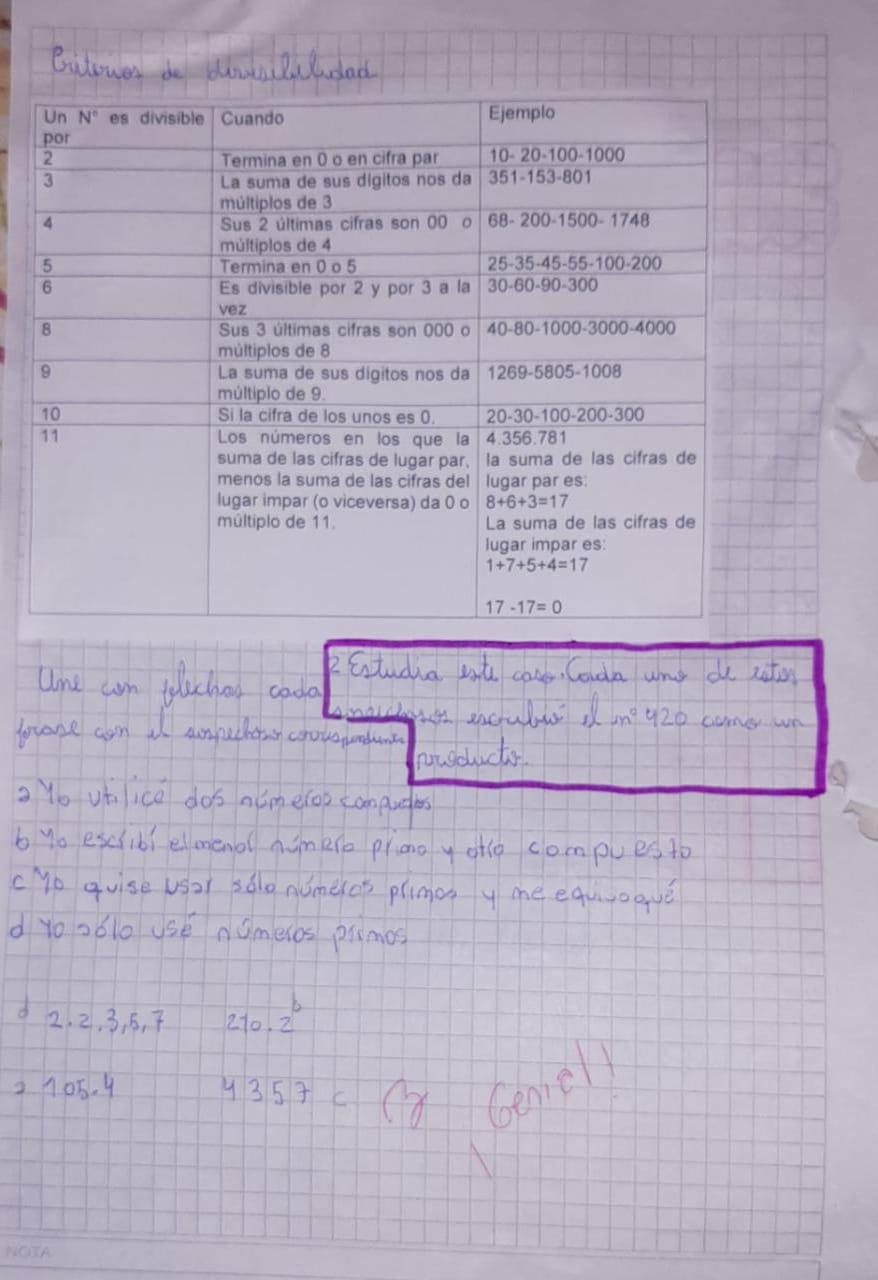 Criterios de divisibilidad
Un N° es divisible por
Cuando
Ejemplo
2
Termina en 0 o en cifra par
10- 20-100-1000
3
La suma de sus dígitos nos da
múltiplos de 3
351-153-801
4
Sus 2 últimas cifras son 00 o
múltiplos de 4
68- 200-1500- 1748
5
Termina en 0 o 5
25-35-45-55-100-200
6
Es divisible por 2 y por 3 a la
vez
30-60-90-300
8
Sus 3 últimas cifras son 000 o
múltiplos de 8
40-80-1000-3000-4000
9
La suma de sus dígitos nos da
múltiplo de 9.
1269-5805-1008
10
Si la cifra de los unos es 0.
20-30-100-200-300
11
Los números en los que la
suma de las cifras de lugar par,
menos la suma de las cifras del
lugar impar (o viceversa) da 0 o
múltiplo de 11.
4.356.781
la suma de las cifras de
lugar par es:
8+6+3=17
La suma de las cifras de
lugar impar es:
1+7+5+4=17
17 -17= 0
2 Estudia este caso. Cada uno de estos
escribió el n° 420 como un
producto.
Une con flechas cada
frase con el sospechoso correspondiente
a Yo utilicé dos números compuestos
b Yo escribí el menor número primo y otro compuesto
c Yo quise usar sólo números primos y me equivoqué
d Yo sólo usé números primos
d 2.2.3,5,7 210.2 b
a 105.4 4357 c
Genial!
NOTA